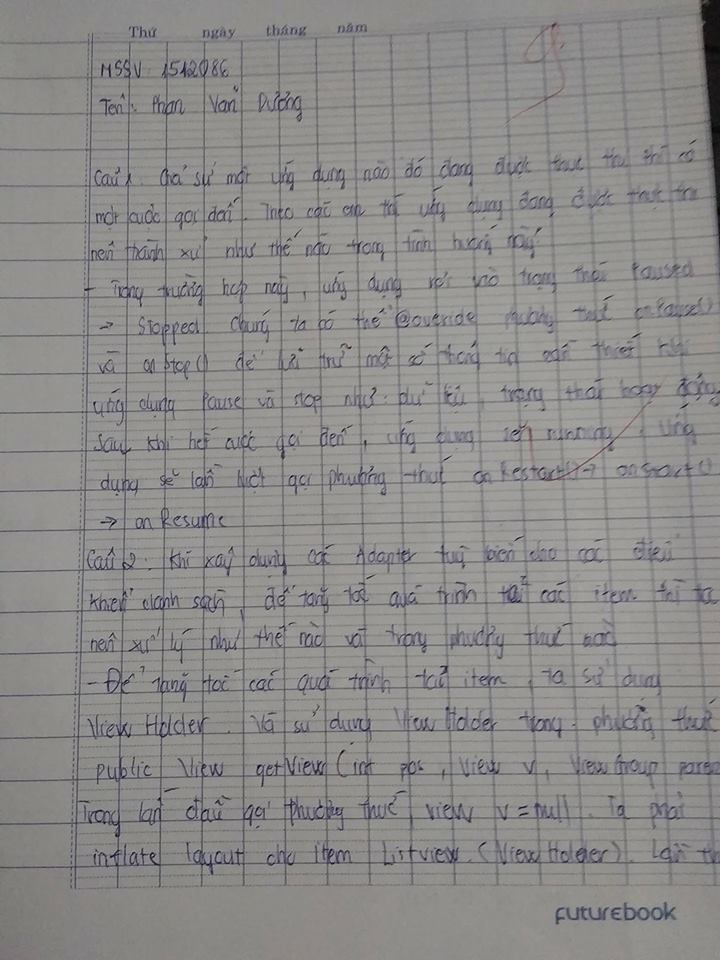 Thứ ngày tháng năm
MSSV: 1512086
Tên: Phan Văn Dương
Câu 1. Giả sử một ứng dụng nào đó đang được thực thi thì có
một cuộc gọi đến. Theo các em thì ứng dụng đang được thực thi
nên xử như thế nào trong tình huống này
- Trong trường hợp này, ứng dụng rơi vào trạng thái Paused
→ Stopped. Chúng ta có thể @overide phương thức onPause()
và onStop() để lưu trữ một số thông tin cần thiết khi
ứng dụng Pause và stop như: dữ liệu, trạng thái hoạt động
Sau khi hết cuộc gọi đến, ứng dụng running. Ứng
dụng sẽ lần lượt gọi phương thức onRestart() → onStart()
→ onResume
Câu 2. Khi xây dựng các Adapter tuỳ biến cho các điều
khiển danh sách, để tăng tốc quá trình tải các item thì ta
nên xử lý như thế nào và trong phương thức nào
- Để tăng tốc các quá trình tải item, ta sử dụng
View Holder. Và sử dụng View Holder trong phương thức
public View getView (int pos, View v, ViewGroup
Trong lần đầu gọi phương thức, view v = null. Ta phải
inflate layout cho item Listview. (View Holder). Lần
FUTUREBOOK